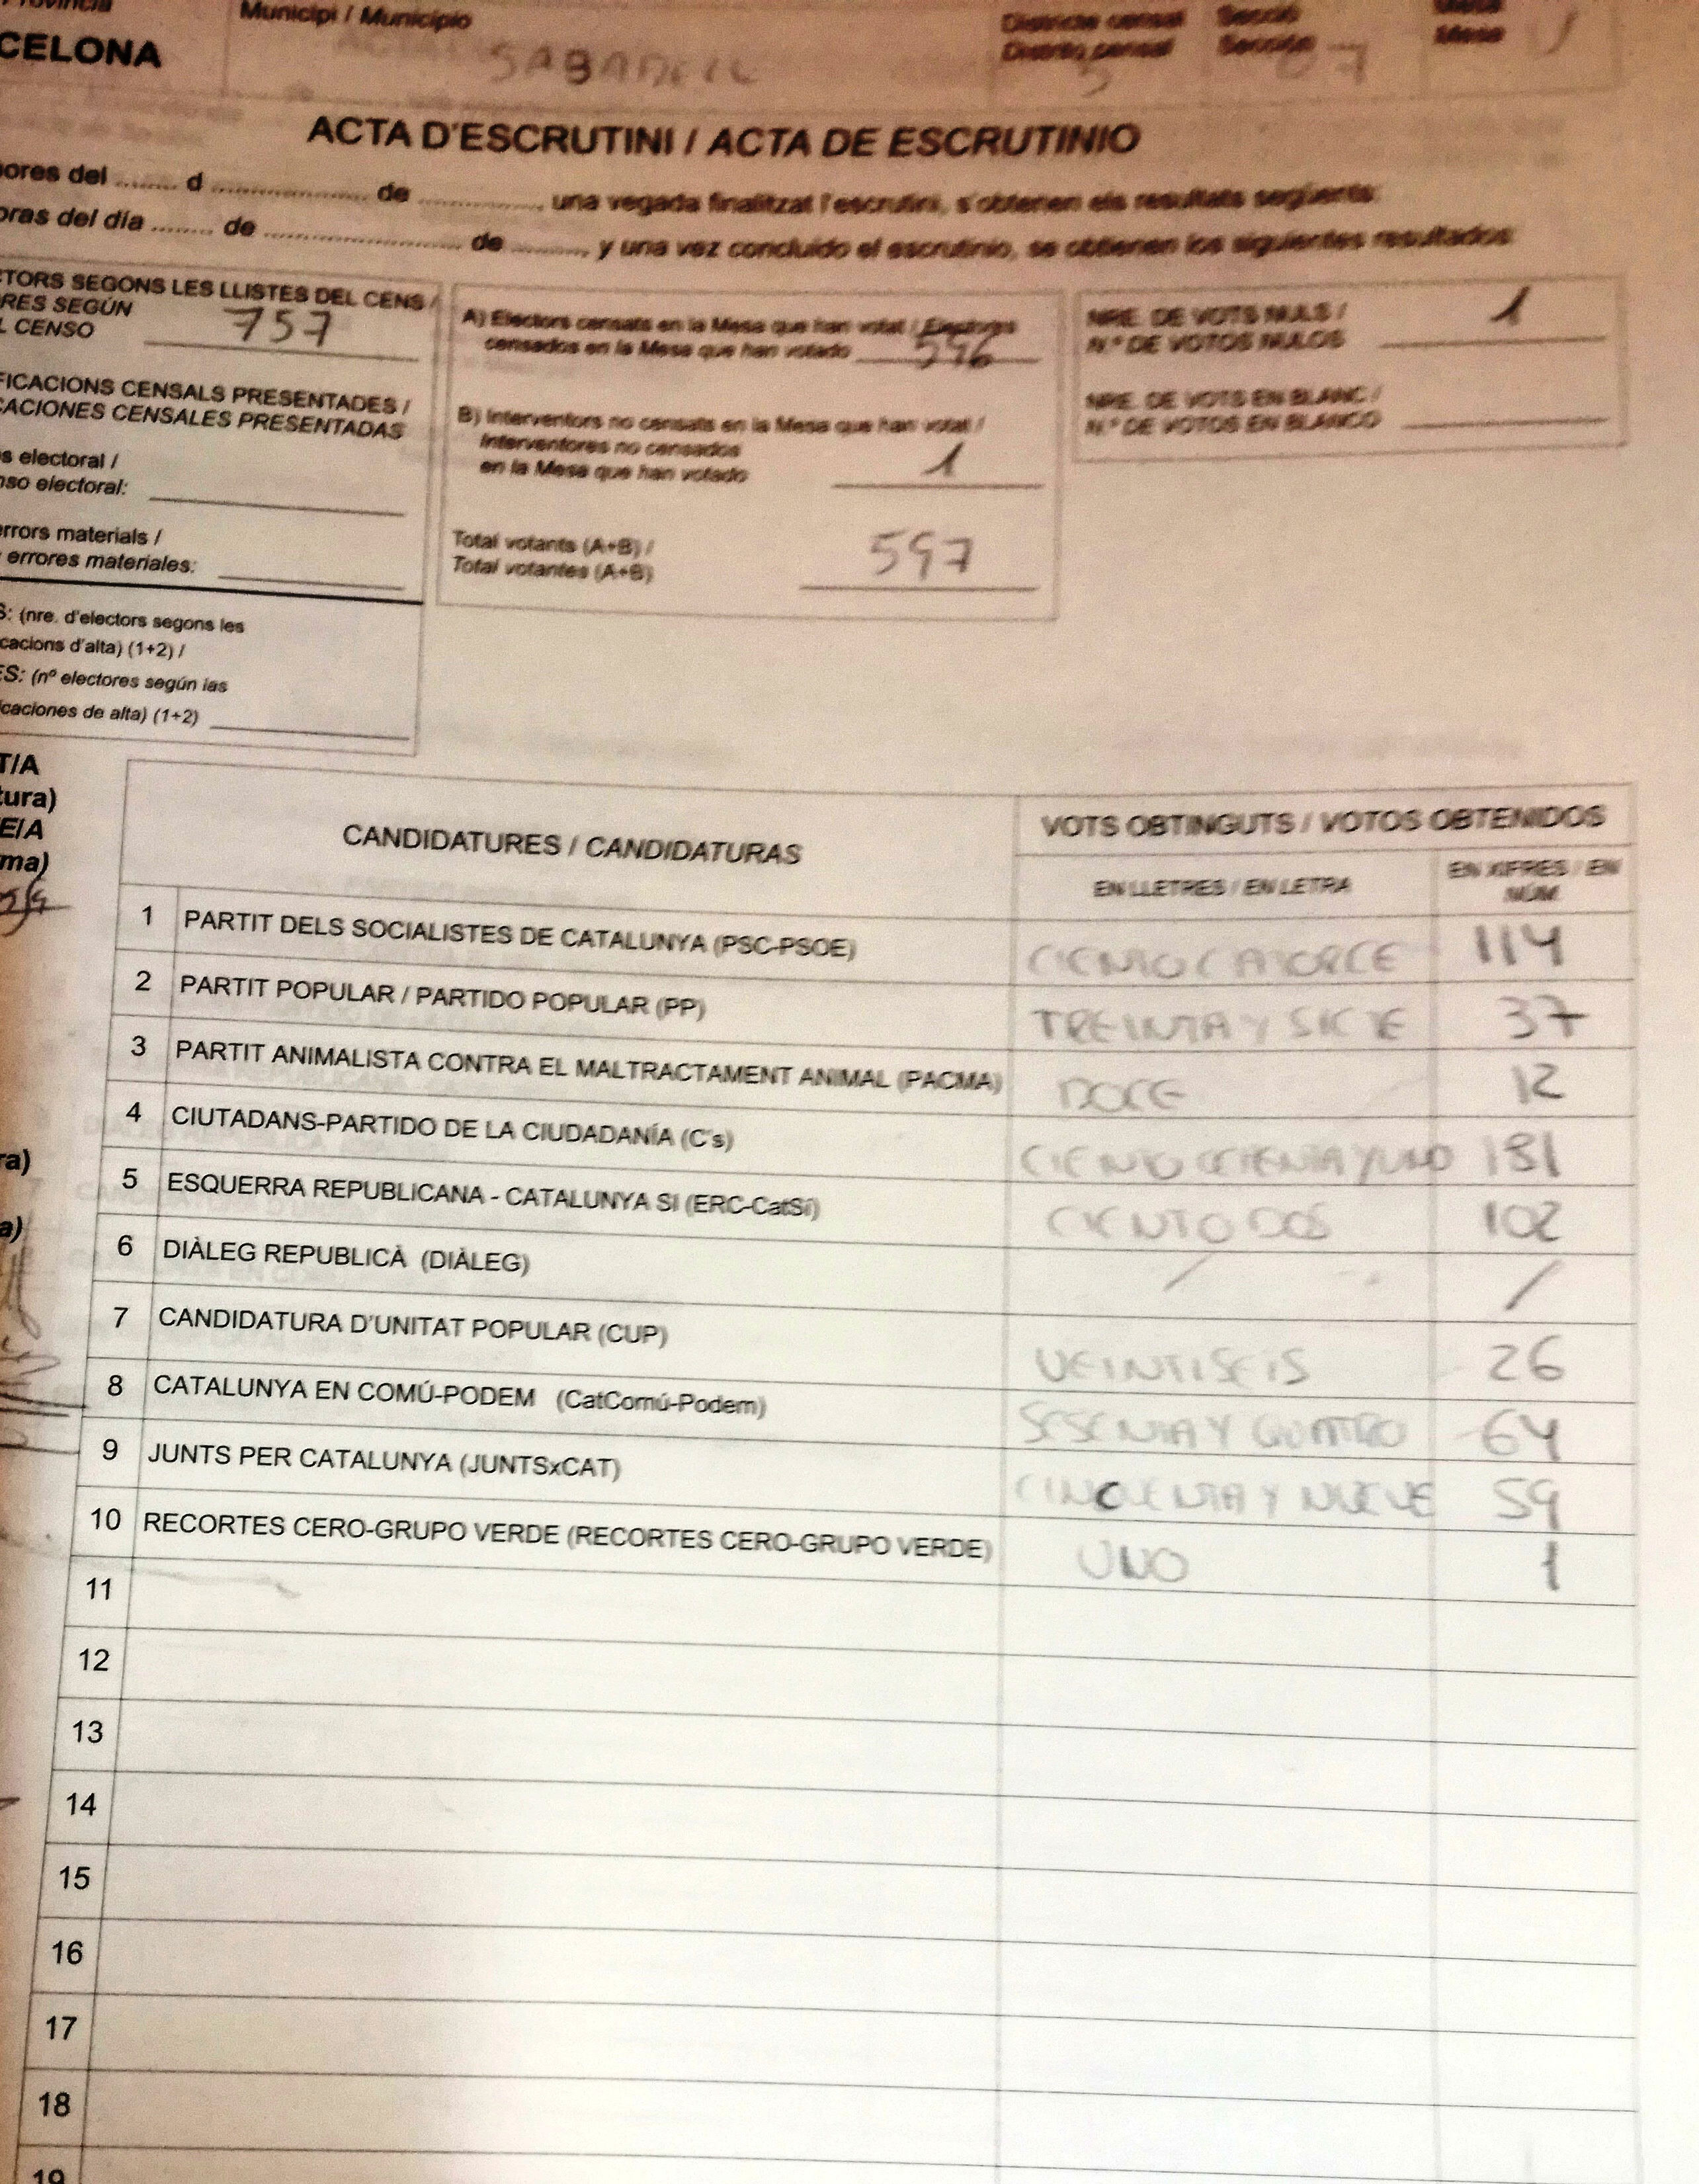 Província
CELONA
Municipi / Municipio
SABADELL
Districte censal
Distrito censal
5
Secció
Sección
07
Mesa
Mesa
ACTA D'ESCRUTINI / ACTA DE ESCRUTINIO
hores del ........ d .................... de ..............., una vegada finalitzat l'escrutini, s'obtenen els resultats següents:
oras del día ........ de .......................... de .........., y una vez concluido el escrutinio, se obtienen los siguientes resultados:
CTORS SEGONS LES LLISTES DEL CENS /
ORES SEGÚN
L CENSO 757
FICACIONS CENSALS PRESENTADES /
CACIONES CENSALES PRESENTADAS
s electoral /
nso electoral:
errors materials /
errores materiales:
S: (nre. d'electors segons les
cacions d'alta) (1+2) /
ES: (nº electores según las
caciones de alta) (1+2)
A) Electors censats en la Mesa que han votat / Electores
censados en la Mesa que han votado 596
B) Interventors no censats en la Mesa que han votat /
Interventores no censados
en la Mesa que han votado 1
Total votants (A+B) /
Total votantes (A+B) 597
NRE. DE VOTS NULS /
N.º DE VOTOS NULOS 1
NRE. DE VOTS EN BLANC /
N.º DE VOTOS EN BLANCO
T/A
tura)
E/A
ma)
ra)
a)
CANDIDATURES / CANDIDATURAS
VOTS OBTINGUTS / VOTOS OBTENIDOS
EN LLETRES / EN LETRA
EN XIFRES / EN
NÚM.
1 PARTIT DELS SOCIALISTES DE CATALUNYA (PSC-PSOE) CIENTO CATORCE 114
2 PARTIT POPULAR / PARTIDO POPULAR (PP) TREINTA Y SIETE 37
3 PARTIT ANIMALISTA CONTRA EL MALTRACTAMENT ANIMAL (PACMA) DOCE 12
4 CIUTADANS-PARTIDO DE LA CIUDADANÍA (C's) CIENTO OCHENTA Y UNO 181
5 ESQUERRA REPUBLICANA - CATALUNYA SI (ERC-CatSí) CIENTO DOS 102
6 DIÀLEG REPUBLICÀ (DIÀLEG) / /
7 CANDIDATURA D'UNITAT POPULAR (CUP) VEINTISEIS 26
8 CATALUNYA EN COMÚ-PODEM (CatComú-Podem) SESENTA Y CUATRO 64
9 JUNTS PER CATALUNYA (JUNTSxCAT) CINCUENTA Y NUEVE 59
10 RECORTES CERO-GRUPO VERDE (RECORTES CERO-GRUPO VERDE) UNO 1
11
12
13
14
15
16
17
18
19